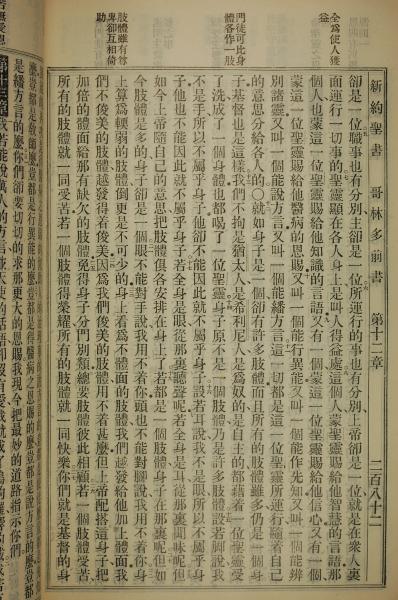 新約聖書 哥林多前書 第十二章 三百八十二
全為使人獲益
卻是一位職事也有分別主卻是一位所運行的事也有分別上帝卻是一位就是在衆人裏
面運行一切事的聖靈顯在各人身上是叫人得益處這個人蒙聖靈賜給他智慧的言語那
個人也蒙這一位聖靈賜給他知識的言語又有一個人蒙這一位聖靈賜給他信心又有一個人
蒙這一位聖靈賜給他醫病的恩賜又叫一個能行異能又叫一個能作先知又叫一個能辨
別諸靈又叫一個能說方言又叫一個能繙方言這一切都是這一位聖靈所運行隨着自己
門徒可比身體各作一肢
的意思分給各人的○就如身子是一個卻有許多肢體而且所有的肢體雖多仍是一個身
子基督也是這樣我們不拘是猶太人是希利尼人是為奴的是自主的都藉着一位聖靈受
了洗成了一個身體也都喝了一位聖靈身子原不是一個肢體乃是許多肢體設若脚說我
不是手所以不屬乎身子他卻不能因此就不屬乎身子設若耳說我不是眼所以不屬乎身
子他也不能因此就不屬乎身子若全身是眼從那裏聽聲呢若全身是耳從那裏聞味呢但
如今上帝隨自己的意思把肢體俱各安排在身上了若都是一個肢體身子在那裏呢但如
肢體雖有尊卑卻互相倚助
今肢體是多的身子卻是一個眼不能對手說我用不着你頭也不能對脚說我用不着你身
上算為輭弱的肢體倒更是不可少的身上看為不體面的肢體我們越發給他加上體面我
們不俊美的肢體越發得着俊美因為我們俊美的肢體用不着甚麼但上帝配搭這身子把
加倍的體面給那有缺欠的肢體免得身子分門別類總要肢體彼此相顧若一個肢體受苦
所有的肢體就一同受苦若一個肢體得榮耀所有的肢體就一同快樂你們就是基督的身
麼豈都是教師麼豈都是行異能的麼豈都是得醫病之恩賜的麼豈都是說方言的麼豈都
是繙方言的麼你們卻要切切的求那更大的恩賜我現今把最妙的道路指示你們